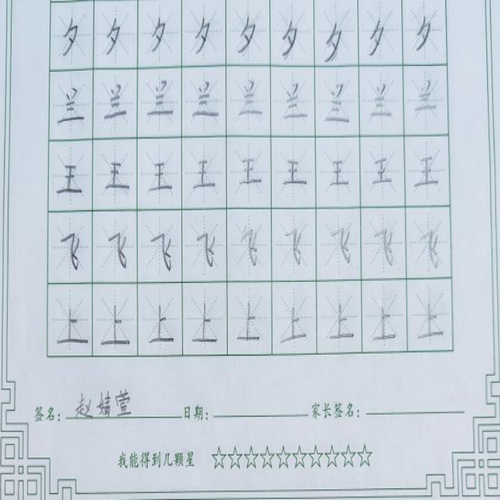 夕夕夕夕夕夕夕夕夕
兰兰兰兰兰兰兰兰兰
王王王王王王王王王
飞飞飞飞飞飞飞飞飞
上上上上上上上上上
签名：赵婧萱 日期： 家长签名：
我能得到几颗星 ☆☆☆☆☆☆☆☆☆☆